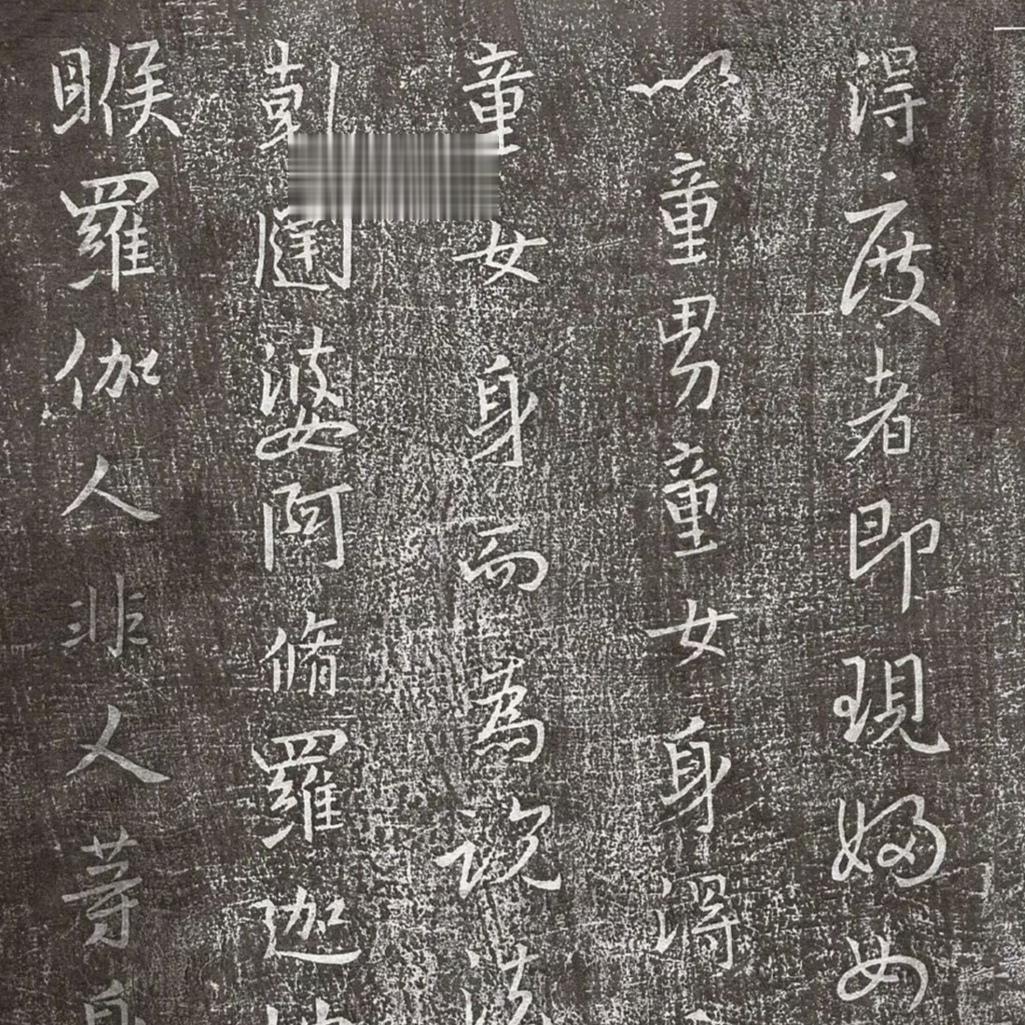 得度者即現婦女
以童男童女身得
童女身而為說
乾闥婆阿脩羅迦
睺羅伽人非人等